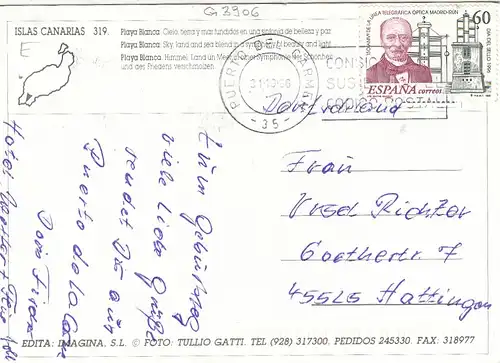 G 3906
ISLAS CANARIAS 319.
E
Playa Blanca: Cielo, tierra y mar fundidos en una sinfonía de belleza y paz.
Playa Blanca: Sky, land and sea blend in a symphony of beauty and light.
Playa Blanca: Himmel, Land und Meer einer Symphonie der Schönheit
und des Friedens verschmolzen.
150 ANIV DE LA LINEA TELEGRAFICA OPTICA MADRID-IRUN
60
DIA DEL SELLO 1996
ESPAÑA correos
PUERTO DEL CARMEN
-35-
CONSIG
SUS
CODIGO POSTAL
Deutschland
Zum Geburtstag
viele liebe Grüße
sendet Dir aus
Puerto de la
Frau
Ursel Richter
Goethestr 7
45525 Hattingen
EDITA: IMAGINA. S.L. © FOTO: TULLIO GATTI. TEL (928) 317300. PEDIDOS 245330. FAX. 318977